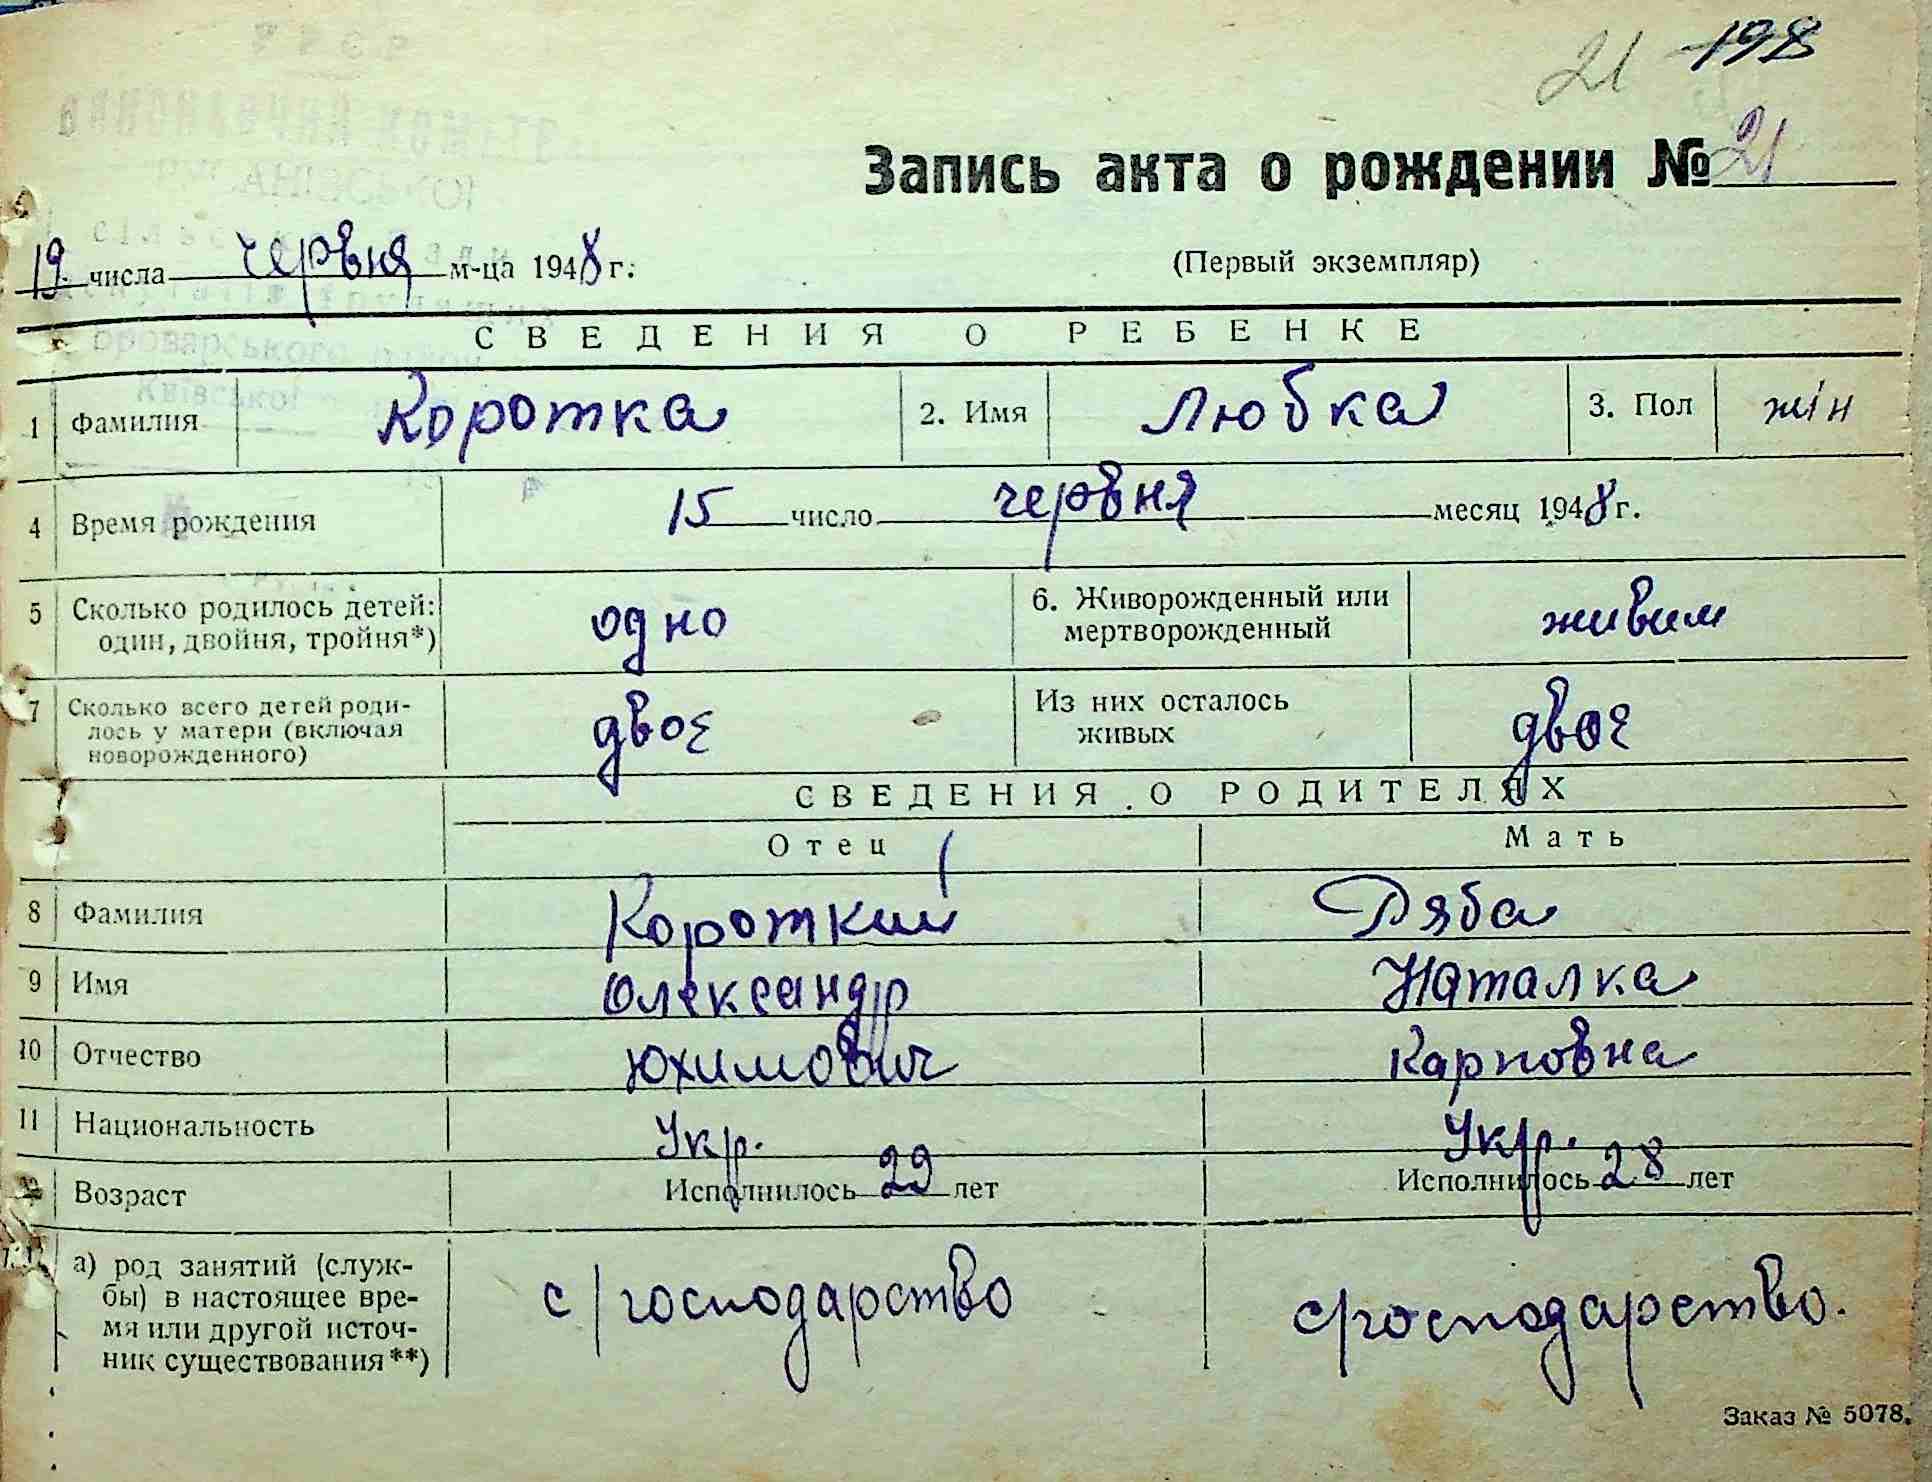 21 198
Запись акта о рождении № 21
19 числа червня м-ца 1948 г.
(Первый экземпляр)
СВЕДЕНИЯ О РЕБЕНКЕ
1 Фамилия Коротка 2. Имя Любка 3. Пол жін
4 Время рождения 15 число червня месяц 1948 г.
5 Сколько родилось детей: один, двойня, тройня*) одно 6. Живорожденный или мертворожденный живим
7 Сколько всего детей родилось у матери (включая новорожденного) двоє Из них осталось живых двоє
СВЕДЕНИЯ О РОДИТЕЛЯХ
Отец Мать
8 Фамилия Короткий Дяба
9 Имя Олександр Наталка
10 Отчество Юхимович Карповна
11 Национальность Укр. Укр.
Возраст Исполнилось 29 лет Исполнилось 28 лет
а) род занятий (служ-
бы) в настоящее вре-
мя или другой источ-
ник существования**)
с/господарство с/господарство.
Заказ № 5078.